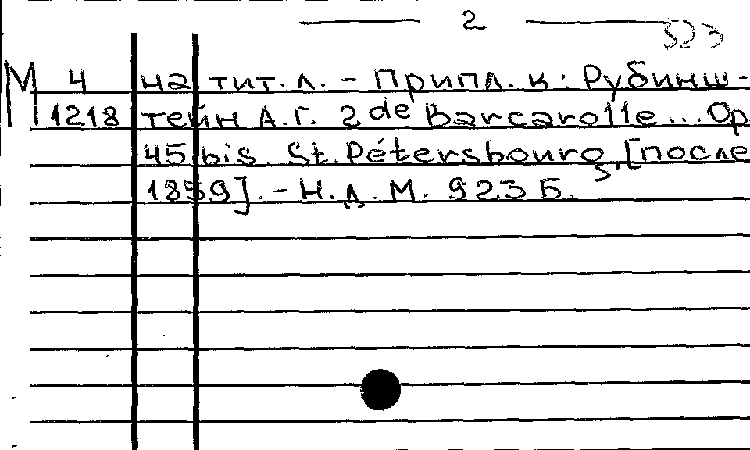 — 2 —
523
М 4 на тит. л. - Припл. к: Рубинш-
1218 тейн А.Г. 2de Barcarolle... Op.
45 bis. St. Pétersbourg, [после
1859]. - Н.д. М. 923 Б.